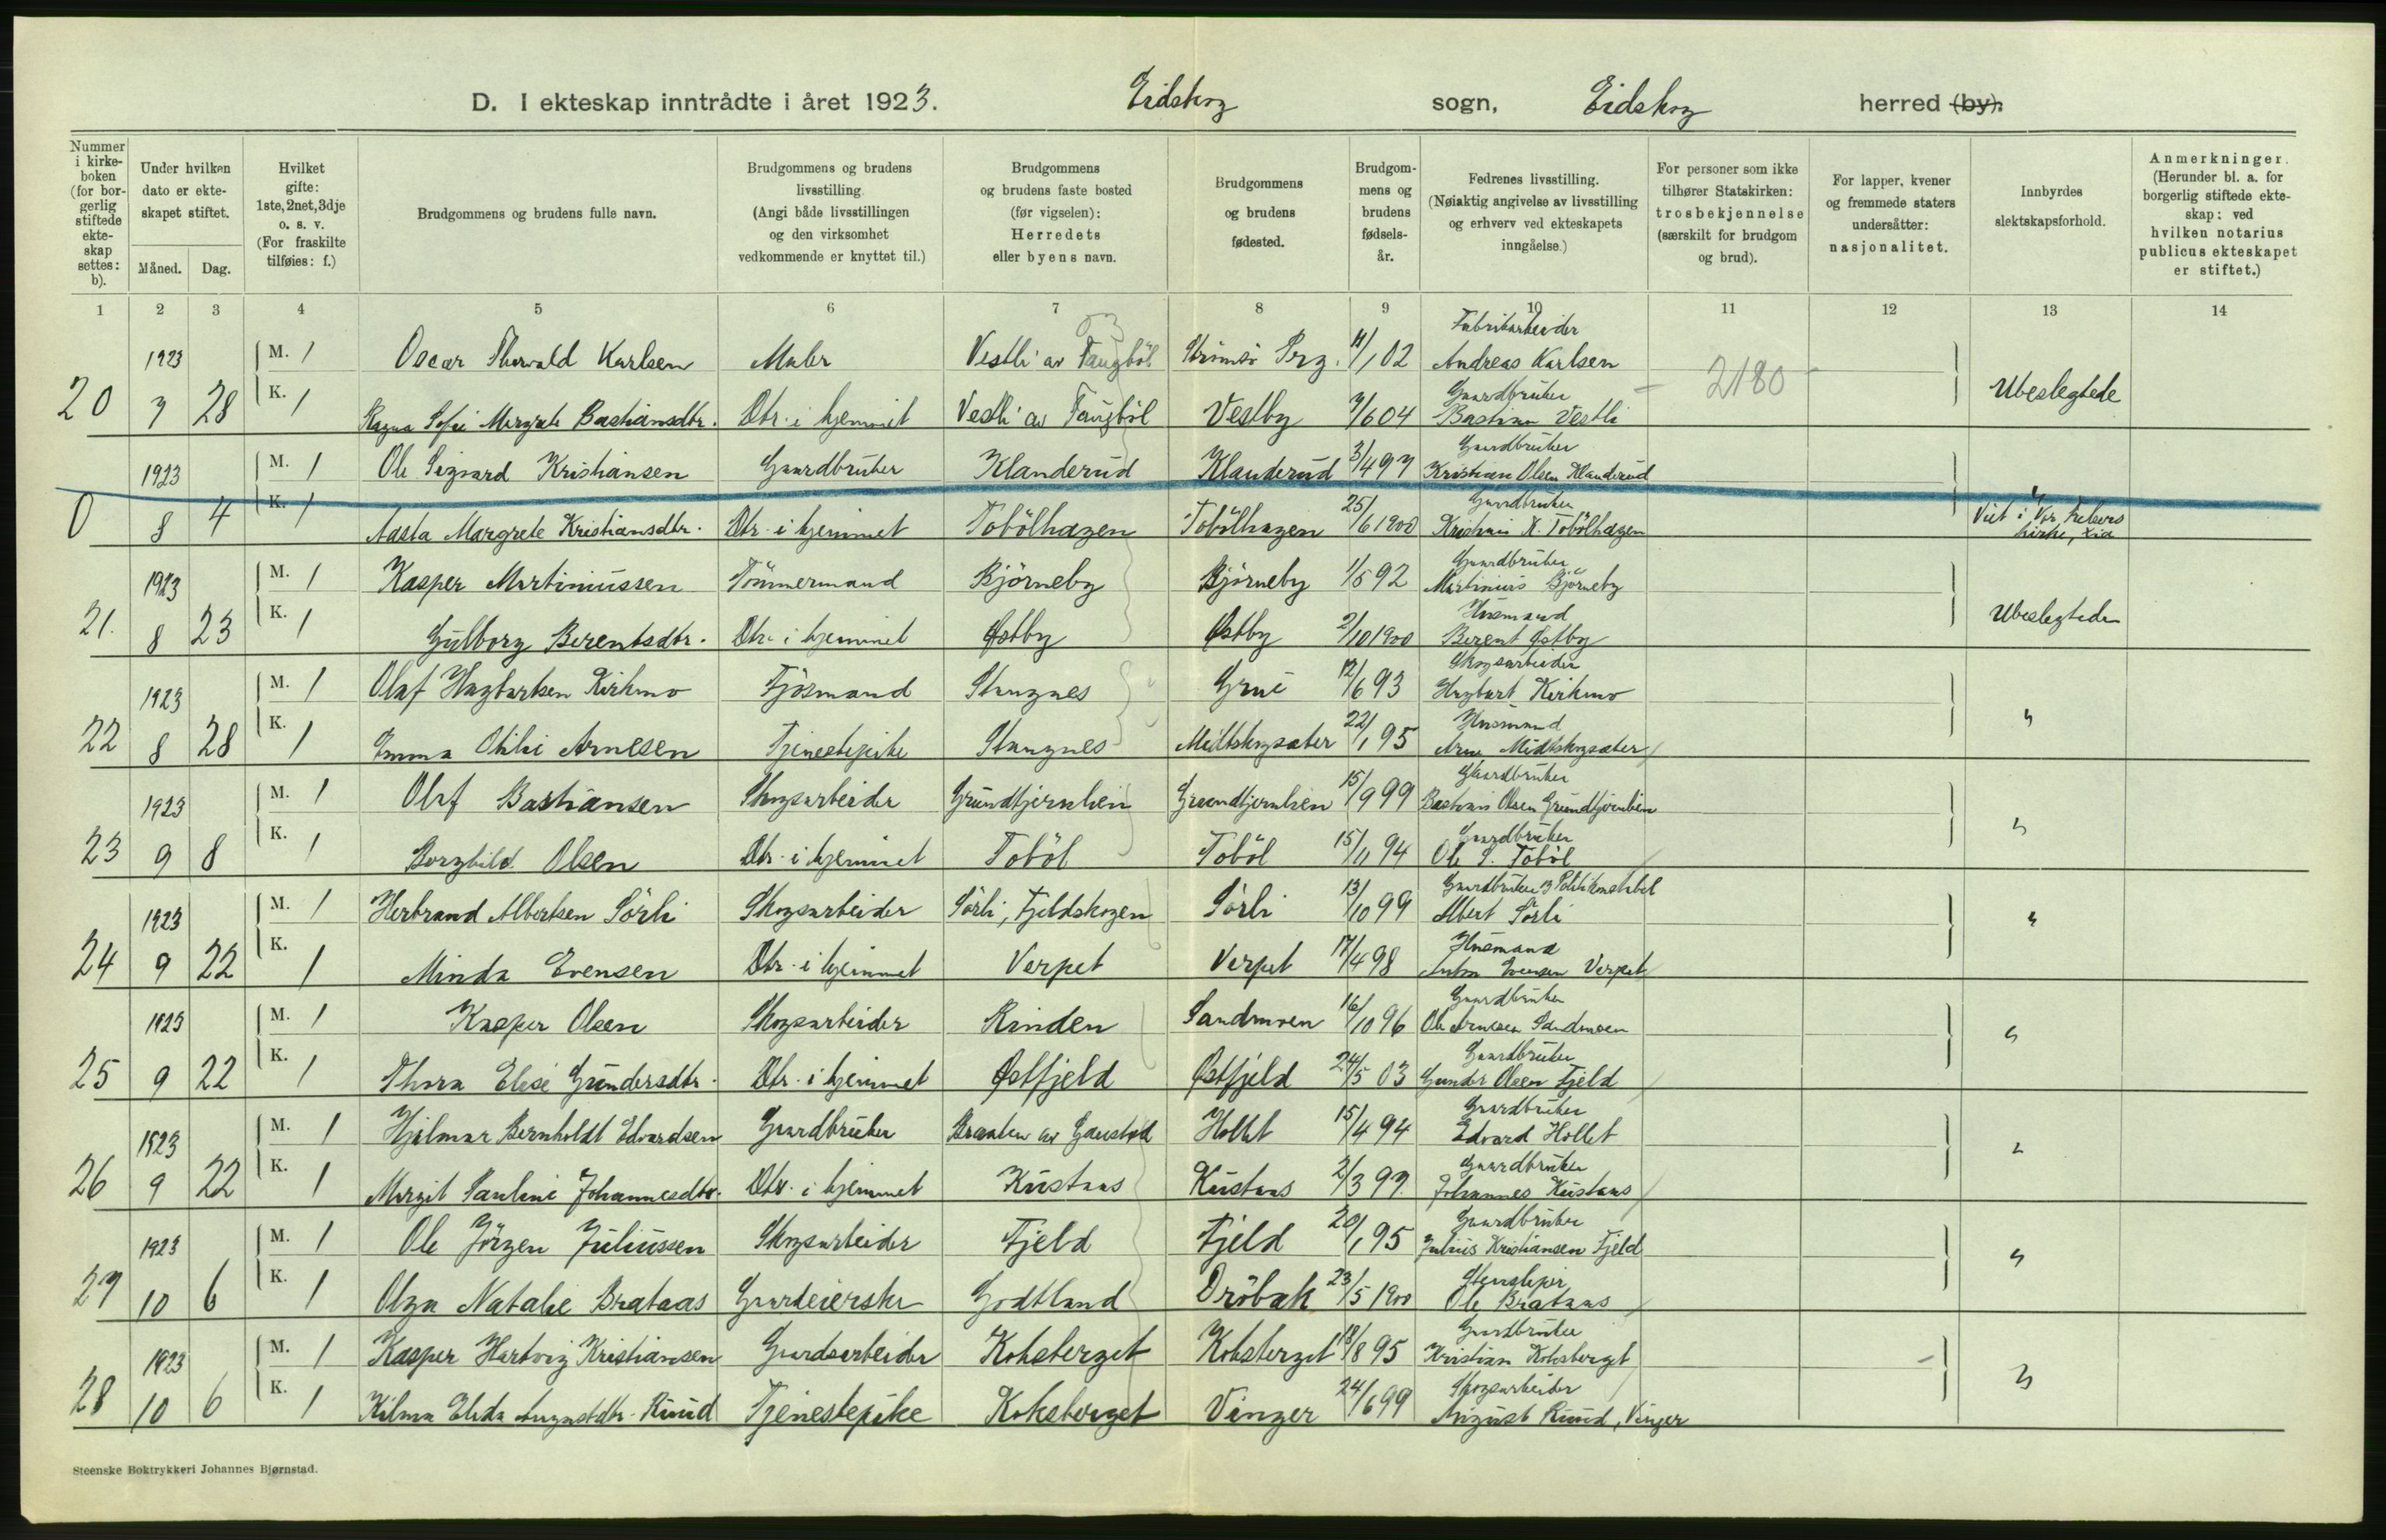 D. I ekteskap inntrådte i året 1923. Eidskog sogn, Eidskog herred (by).
Nummer i kirkeboken (for borgerlig stiftede ekteskap settes: b).
Under hvilken dato er ekteskapet stiftet.
Måned. Dag.
Hvilket gifte: 1ste, 2net, 3dje o. s. v. (For fraskilte tilføies: f.)
Brudgommens og brudens fulle navn.
Brudgommens og brudens livsstilling. (Angi både livsstillingen og den virksomhet vedkommende er knyttet til.)
Brudgommens og brudens faste bosted (før vigselen): Herredets eller byens navn.
Brudgommens og brudens fødested.
Brudgommens og brudens fødselsår.
Fedrenes livsstilling. (Nøiaktig angivelse av livsstilling og erhverv ved ekteskapets inngåelse.)
For personer som ikke tilhører Statskirken: trosbekjennelse (særskilt for brudgom og brud).
For lapper, kvener og fremmede staters undersåtter: nasjonalitet.
Innbyrdes slektskapsforhold.
Anmerkninger. (Herunder bl. a. for borgerlig stiftede ekteskap: ved hvilken notarius publicus ekteskapet er stiftet.)
1 2 3 4 5 6 7 8 9 10 11 12 13 14
Fabrikarbeider
1923 M. 1 Oscar Thorvald Karlsen Maler Vestli av Taugböl Strömsö Prg. 11/1 02 Andreas Karlsen
2180 Ubeslegtede
Gaardbruker
20 7 28 K. 1 Ragna Sofie Margrete Bastiansdtr. Dtr. i hjemmet Vestli av Taugböl Vestby 7/6 04 Bastian Vestli
Gaardbruker
1923 M. 1 Ole Sigvard Kristiansen Gaardbruker Klanderud Klanderud 3/4 97 Kristian Olsen Klanderud
Gaardbruker
0 8 4 K. 1 Aasta Margrete Kristiansdtr. Dtr. i hjemmet Tobölhagen Tobölhagen 25/6 1900 Kristian K. Tobölhagen
Viet i Vor Frelsers kirke, Xia
Gaardbruker
1923 M. 1 Kasper Martiniussen Tömmermand Björneby Björneby 1/5 92 Martinius Björneby
Husmand Ubeslegtede
21. 8 23 K. 1 Gulborg Berentsdtr. Dtr. i hjemmet Østby Østby 2/10 1900 Berent Østby
Skogsarbeider
1923 M. 1 Olaf Hagbartsen Kirkmo Fjösmand Skugnes Grue 12/6 93 Hagbart Kirkmo
Husmand "
22 8 28 K. 1 Emma Otilie Arnesen Tjenestepike Skugnes Midtskogsæter 22/1 95 Arne Midtskogsæter
Gaardbruker
1923 M. 1 Olaf Bastiansen Skogsarbeider Grundtjernlien Grundtjernlien 15/9 99 Bastian Olsen Grundtjernlien
Gaardbruker "
23 9 8 K. 1 Borghild Olsen Dtr. i hjemmet Toböl Toböl 15/11 94 Ole S. Toböl
Gaardbruker og Politikonstabel
1923 M. 1 Herbrand Albertsen Sörli Skogsarbeider Sörli, Fjeldskogen Sörli 13/10 99 Albert Sörli
Husmand "
24 9 22 K. 1 Minda Evensen Dtr. i hjemmet Verpet Verpet 17/4 98 Anton Evensen Verpet
Gaardbruker
1923 M. 1 Kasper Olsen Skogsarbeider Rinden Sandmoen 16/10 96 Ole Arnesen Sandmoen
Gaardbruker "
25 9 22 K. 1 Thora Elise Gundersdtr. Dtr. i hjemmet Østfjeld Østfjeld 24/5 03 Gunder Olsen Fjeld
Gaardbruker
1923 M. 1 Hjalmar Bernholdt Edvardsen Gaardbruker Braaten av Gaustad Hollet 15/4 94 Edvard Hollet
Gaardbruker "
26 9 22 K. 1 Margit Pauline Johannesdtr. Dtr. i hjemmet Kustaas Kustaas 2/3 97 Johannes Kustaas
Gaardbruker
1923 M. 1 Ole Jörgen Juliussen Skogsarbeider Fjeld Fjeld 20/1 95 Julius Kristiansen Fjeld
"
27 10 6 K. 1 Olga Natalie Brataas Gaardeierske Godtland Dröbak 23/5 1900 Ole Brataas
Gaardbruker
1923 M. 1 Kasper Hartvig Kristiansen Gaardsarbeider Koksberget Koksberget 18/8 95 Kristian Koksberget
Skogsarbeider "
28 10 6 K. 1 Kilma Elida Augustdtr. Ruud Tjenestepike Koksberget Vinger 24/6 99 August Ruud, Vinger
Steenske Boktrykkeri Johannes Bjørnstad.